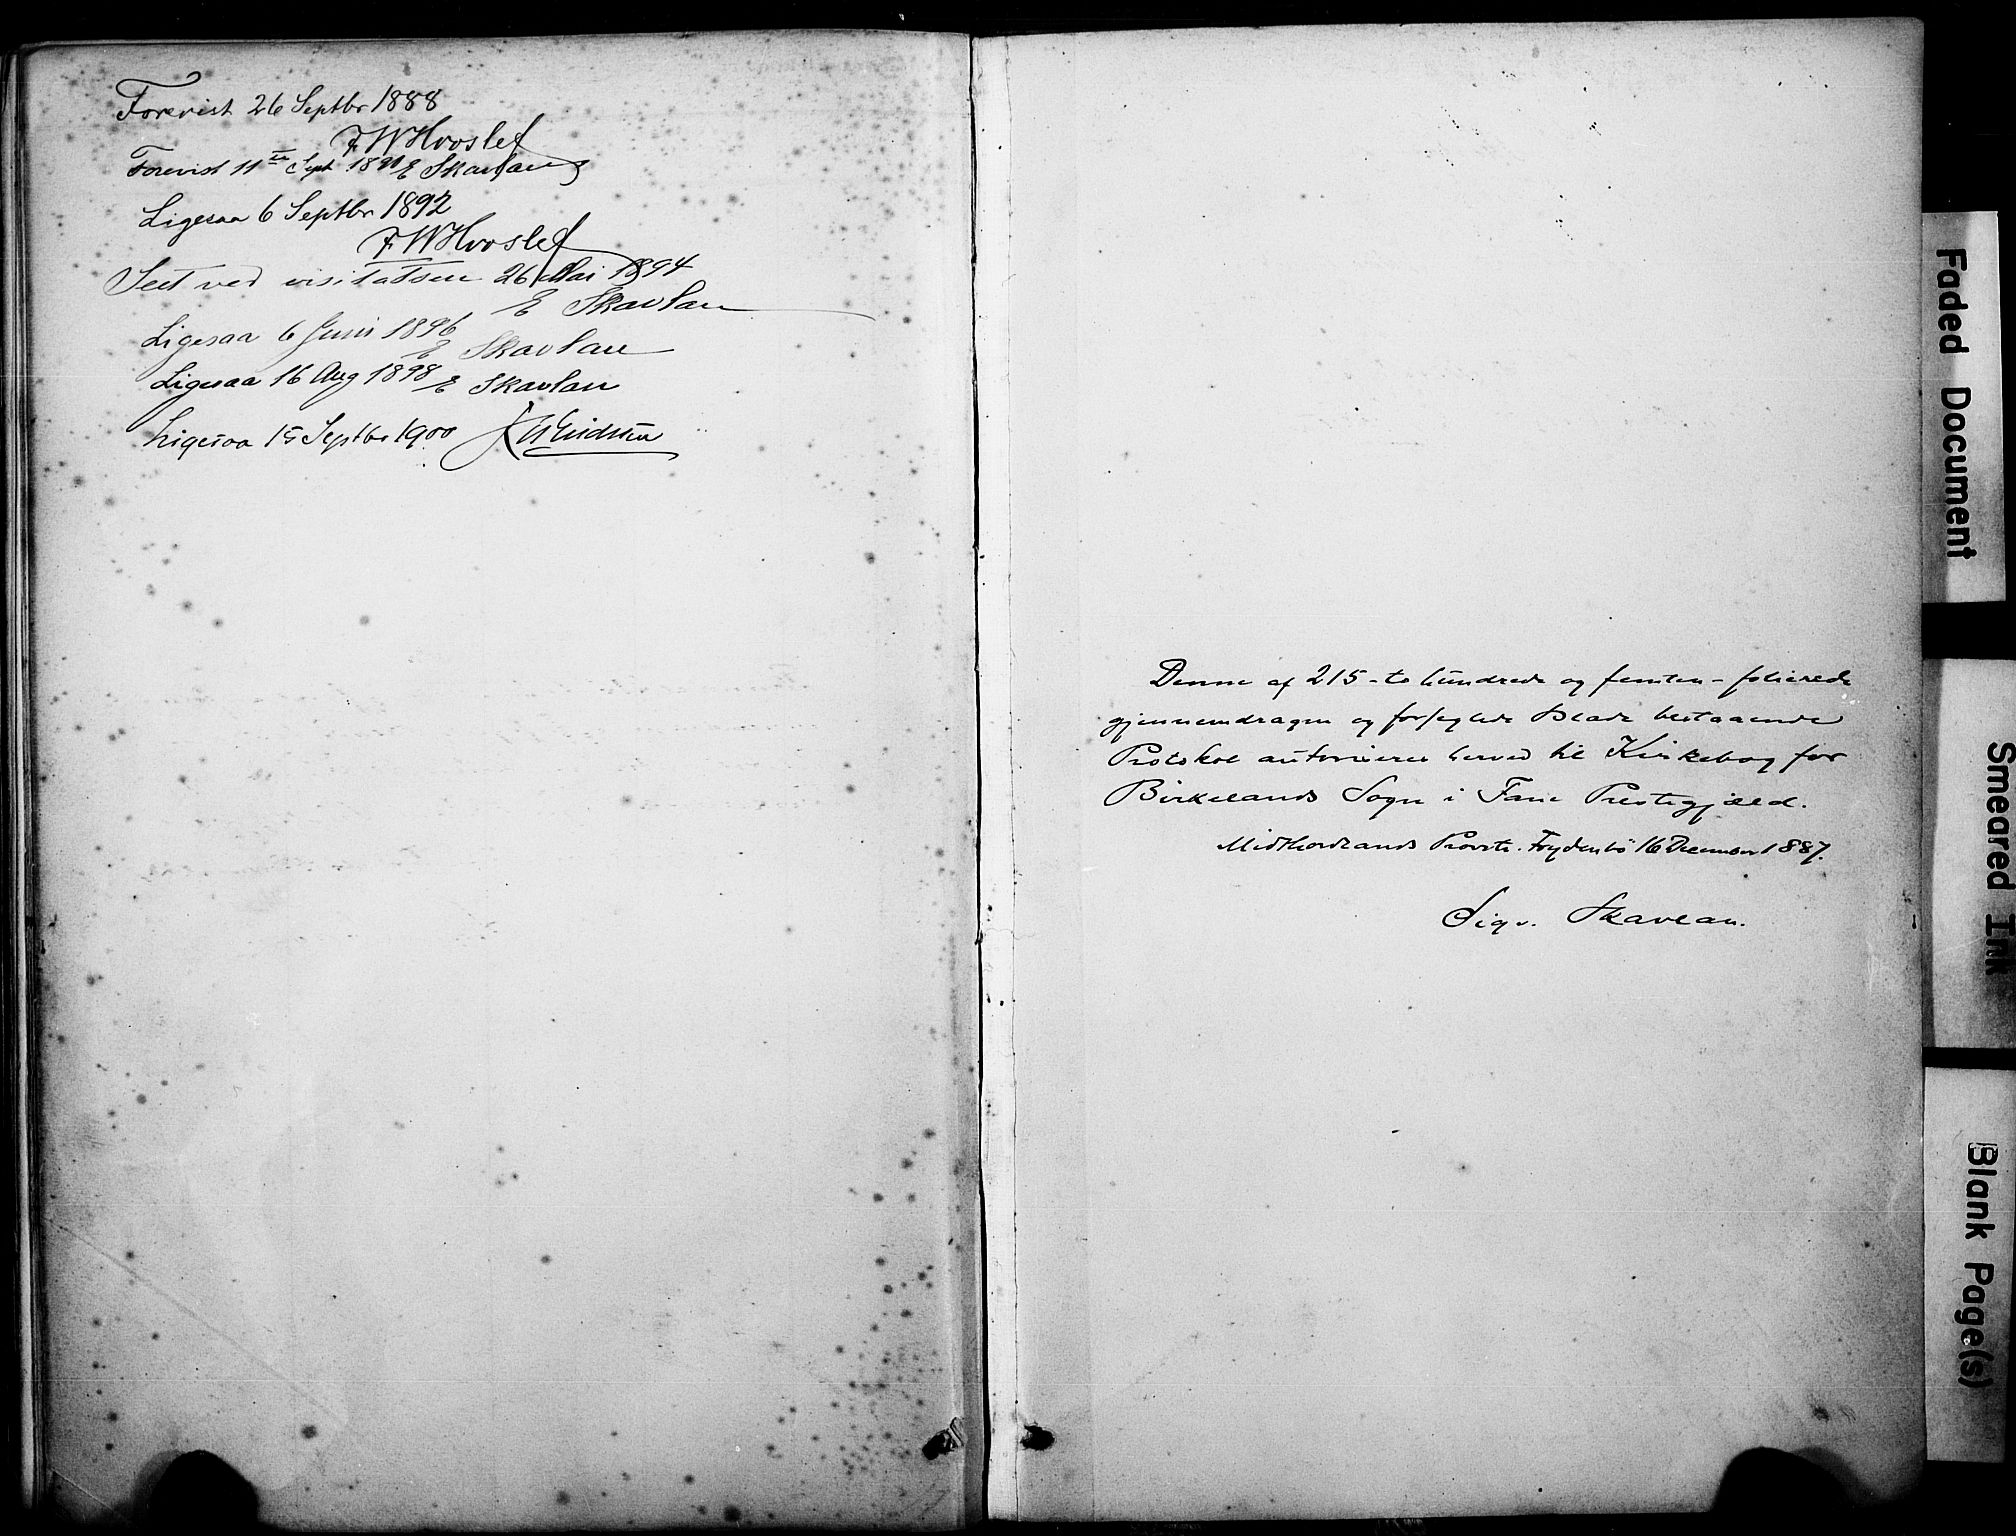 Forevist 26 Septbr 1888
F W Hvoslef
Forevist 11te Sept. 1890 E Skavlan
Ligesaa 6 Septbr 1892
F W Hvoslef
Seet ved visitatsen 26 Mai 1894
E Skavlan
Ligesaa 6 Juni 1896
E Skavlan
Ligesaa 16 Aug 1898 E Skavlan
Ligesaa 15 Septbr 1900
Denne af 215 - to hundrede og femten - folierede
gjennemdragne og forseglede Blade bestaaende
Protokol autoriseres herved til Kirkebog for
Birkelands Sogn i Fane Prestegjæld.
Midthordlands Provsti. Frydenbö 16 December 1887.
Sigv. Skavlan.
Faded Document
Smeared Ink
Blank Page(s)